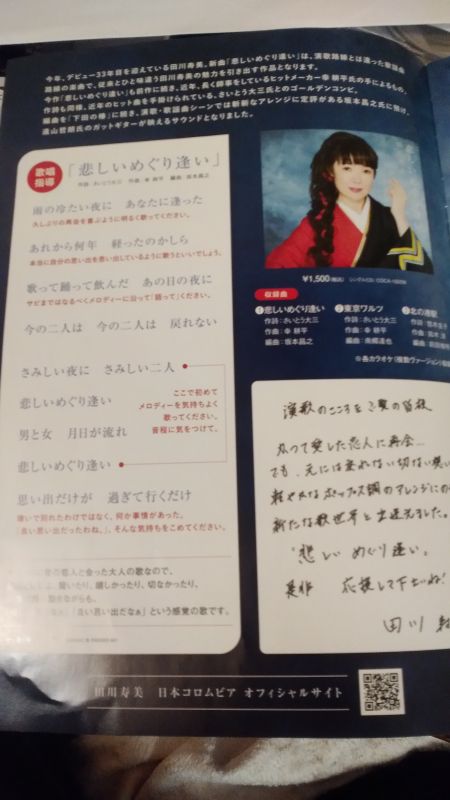 今年、デビュー33年目を迎えている田川寿美。新曲「悲しいめぐり逢い」は、演歌路線とは違った歌謡曲
路線の楽曲で、従来とひと味違う田川寿美の魅力を引き出す作品となります。
今作「悲しいめぐり逢い」も前作に続き、近年、長く師事をしているヒットメーカー幸 耕平氏の手によるもの。
作詩も同様、近年のヒット曲を手掛けられている、さいとう大三氏とのゴールデンコンビ。
編曲を「下田の椿」に続き、演歌・歌謡曲シーンでは斬新なアレンジに定評がある坂本昌之氏に託し、
遠山哲朗氏のガットギターが映えるサウンドとなりました。
歌唱
指導
「悲しいめぐり逢い」
作詩:さいとう大三 作曲:幸 耕平 編曲:坂本昌之
雨の冷たい夜に あなたに逢った
久しぶりの再会を喜ぶように明るく歌ってください。
あれから何年 経ったのかしら
本当に自分の思い出を思い出しているように歌うといいでしょう。
歌って踊って飲んだ あの日の夜に
サビまではなるべくメロディーに沿って「語って」ください。
今の二人は 今の二人は 戻れない
さみしい夜に さみしい二人
悲しいめぐり逢い
男と女 月日が流れ
悲しいめぐり逢い
ここで初めて
メロディーを気持ちよく
歌ってください。
音程に気をつけて。
思い出だけが 過ぎて行くだけ
嫌いで別れたわけではなく、何か事情があった。
「良い思い出だったわね。」、そんな気持ちをこめてください。
の恋人と会った大人の歌なので、
驚いたり、嬉しかったり、切なかったり、
「良い思い出だなぁ」という感覚の歌です。
¥1,500(税込)
収録曲
①悲しいめぐり逢い
作詩:さいとう大三
作曲:幸 耕平
編曲:坂本昌之
②東京ワルツ
作詩:さいとう大三
作曲:幸 耕平
編曲:南郷達也
③北の港駅
※各カラオケ
演歌のこころをご愛の皆様
かつて愛した恋人に再会…
でも、元には戻れない切ない想い
軽やかなポップス調のアレンジにの
新たな歌世界と出逢えました。
"悲しいめぐり逢い"
是非 応援して下さいね!
田川
田川寿美 日本コロムビア オフィシャルサイト